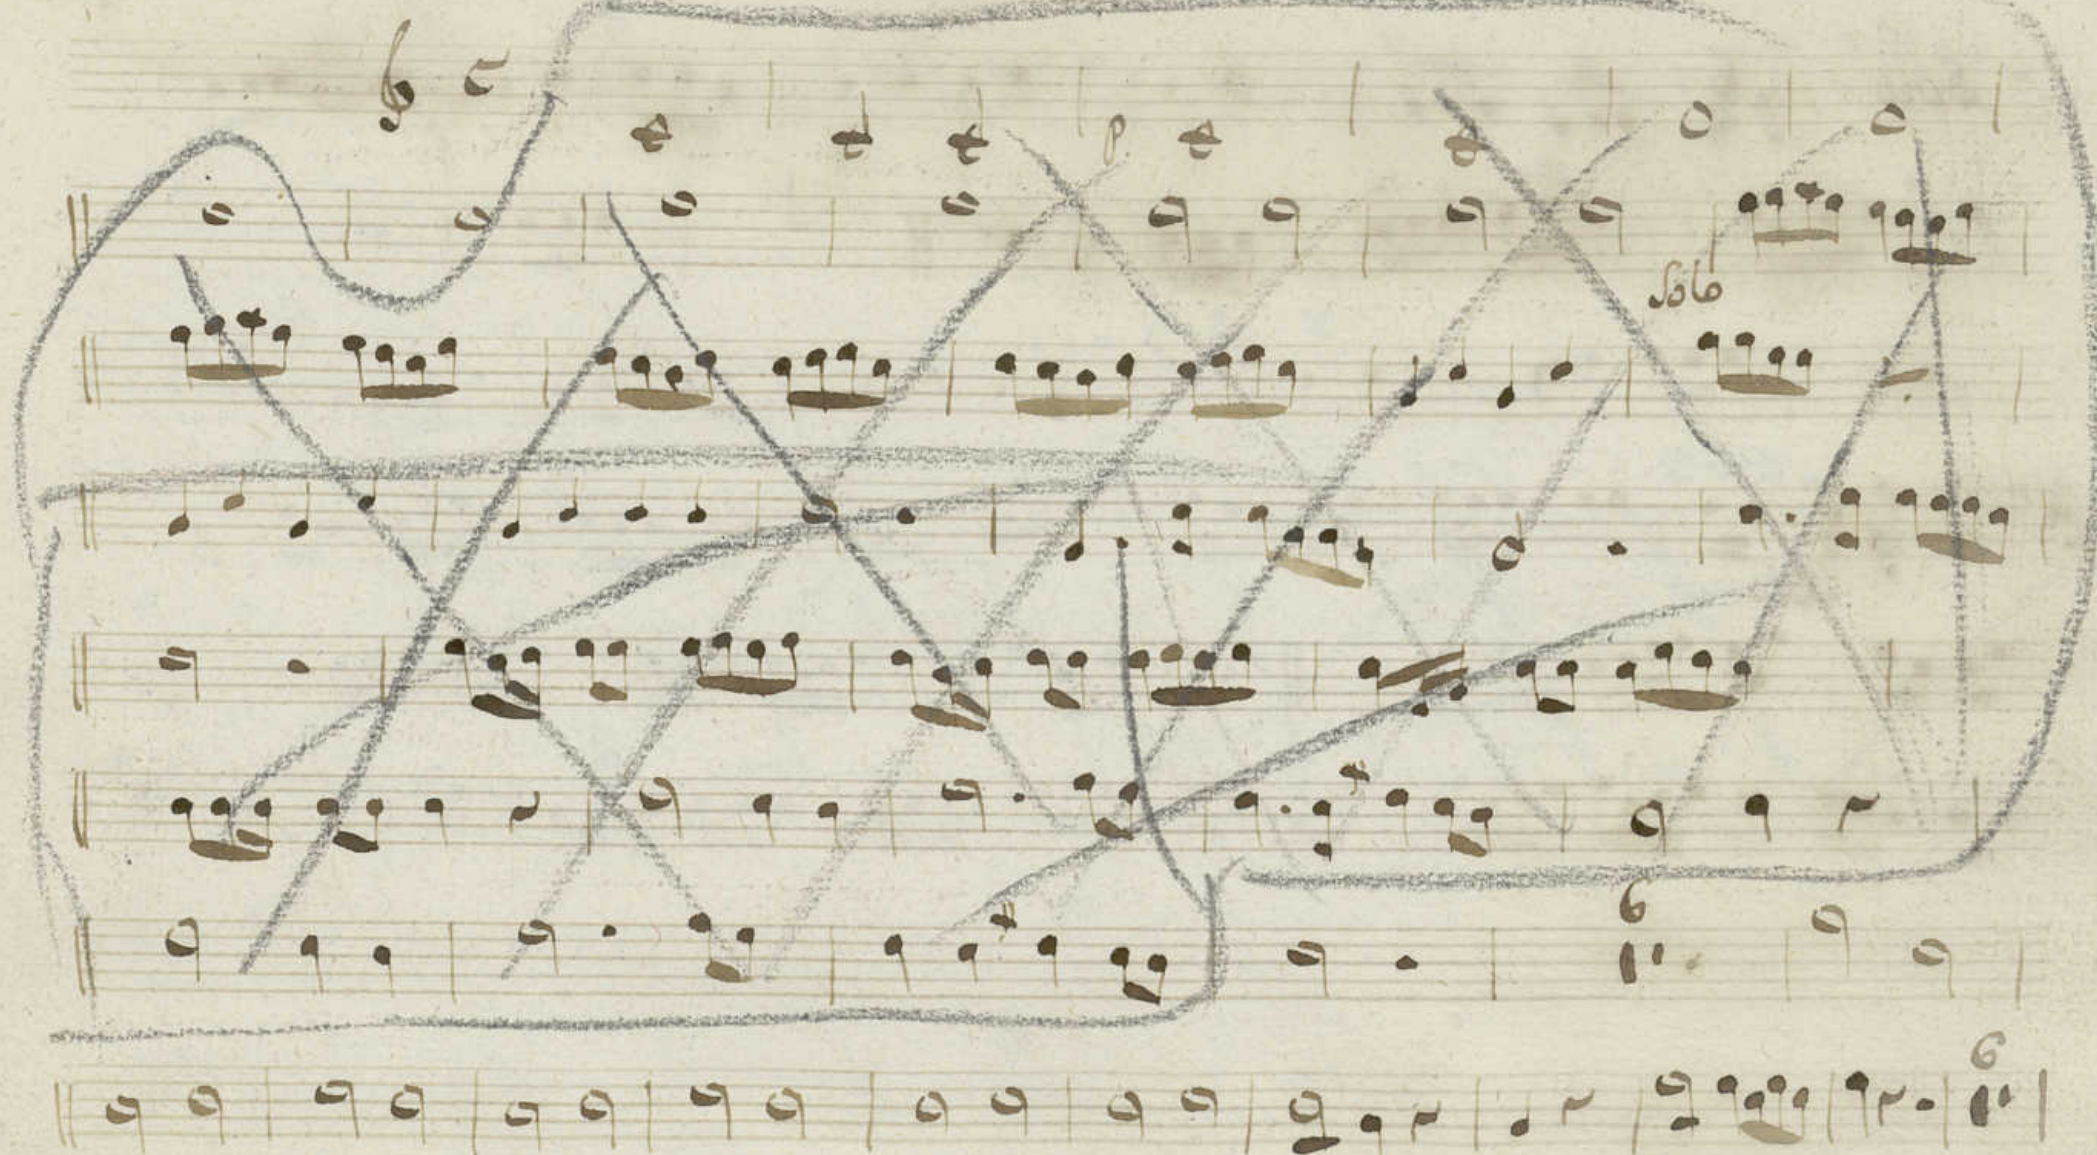 p
Solo
6
6